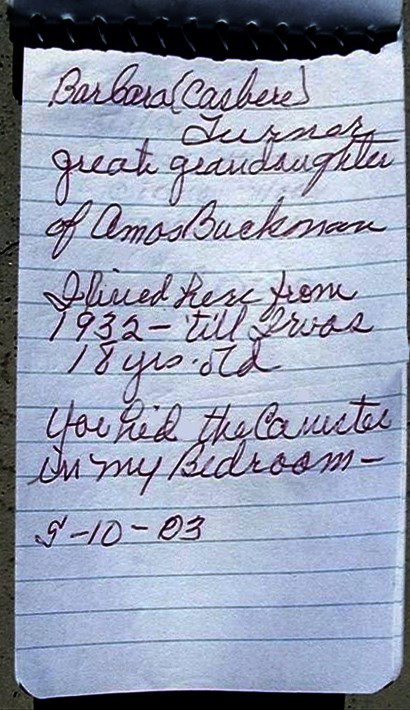 Barbara (Casbere)
Turner
great grandaughter
of Amos Buckman
I lived here from
1932 - till I was
18 yrs. old
You hid the Canister
in my Bedroom -
5-10-03